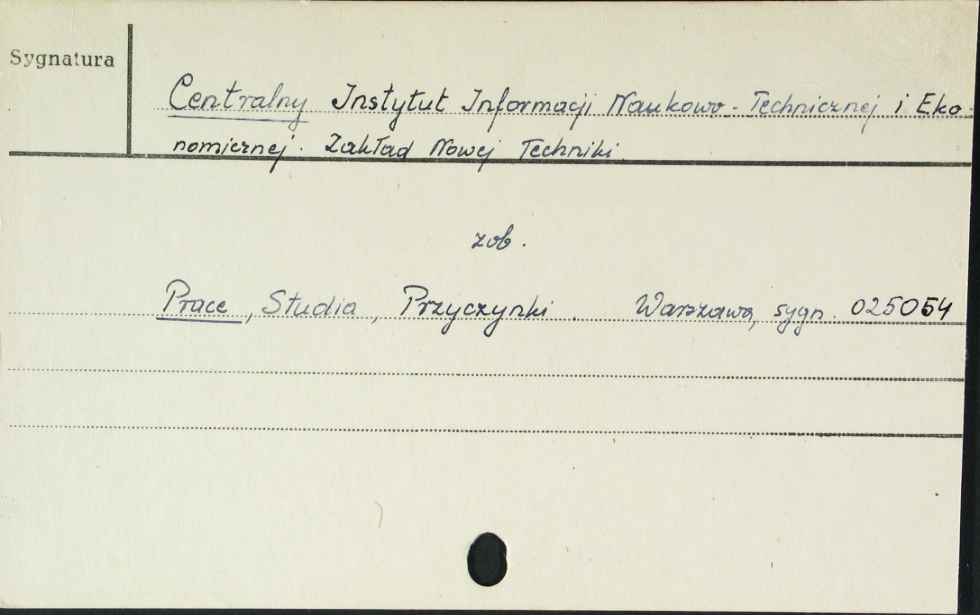 Sygnatura
Centralny Instytut Informacji Naukowo-Technicznej i Eko
nomicznej. Zakład Nowej Techniki
zob.
Prace, Studia, Przyczynki. Warszawa, sygn. 025054